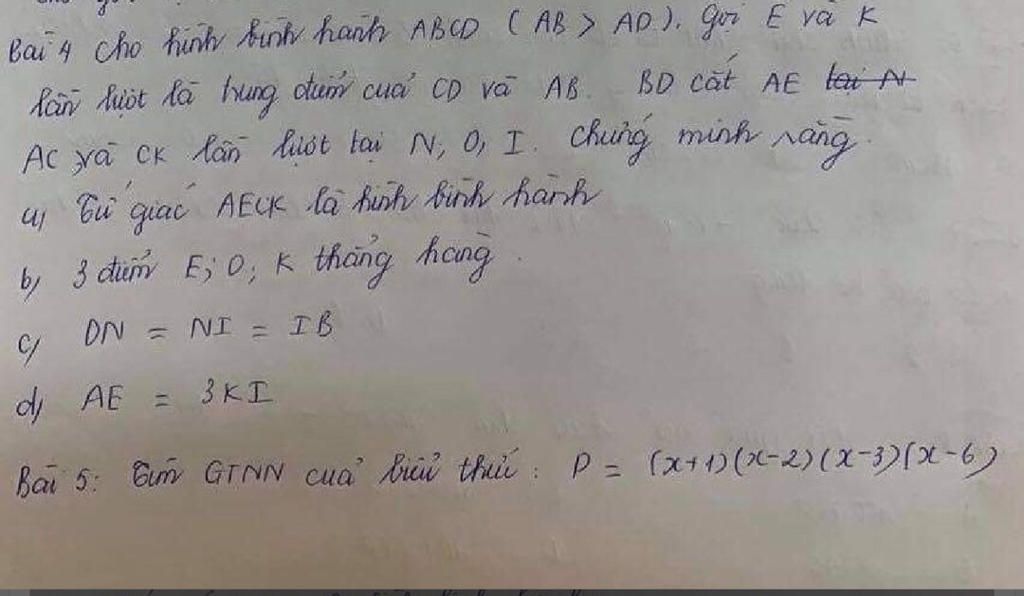 Bài 4 cho hình bình hành ABCD ( AB > AD ). Gọi E và K
lần lượt là trung điểm của CD và AB. BD cắt AE tại N
AC và CK lần lượt tại N, O, I. Chứng minh rằng.
a) Tứ giác AECK là hình bình hành
b) 3 điểm E; O; K thẳng hàng.
c) DN = NI = IB
d) AE = 3KI
Bài 5: Tìm GTNN của biểu thức: P = (x+1)(x-2)(x-3)(x-6)